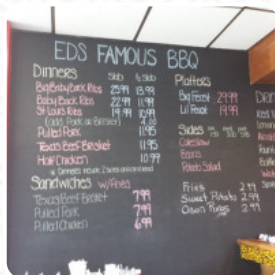 EDS FAMOUS BBQ
Dinners Slab ½ Slab
Big Baby Back Ribs 25.99 13.99
Baby Back Ribs 22.99 11.99
St Louis Ribs 19.99 10.99
(add Pork or Brisket) 4.00
Pulled Pork 11.95
Texas Beef Brisket 11.95
Half Chicken 10.99
Sandwiches w/Fries
Texas Beef Brisket 7.99
Pulled Pork 7.99
Pulled Chicken 6.99
Platters
Big Feast 29.99
Lil Feast 19.99
Sides
Coleslaw
Beans
Potato Salad
Fries 2.99
Sweet Potato 2.99
Onion Rings 2.99